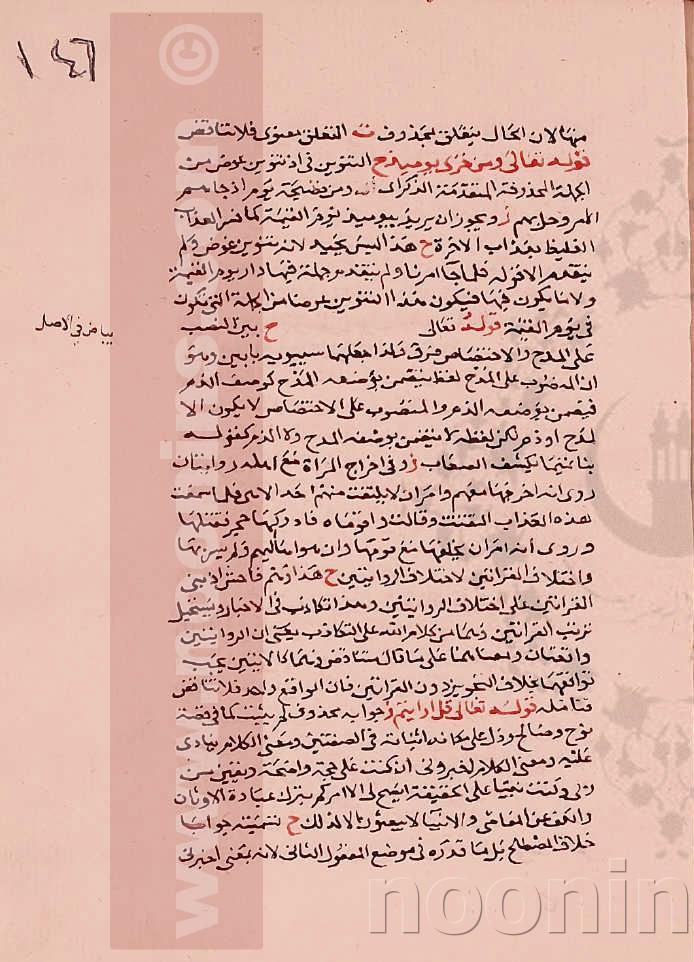 ١٤٦
منها لان الحال يتعلق بمحذوف ت التعلق معنوى فلا تناقض
قوله تعالى ومن خزى يوميذ ح التنوين فى اذ تنوين عوض من
الجملة المحذوفة المتقدمة الذكر اى ومن فضيحة يوم اذ جا امر
الامر وحل بهم ز ويجوز ان يريد بيوميذ يوم القيمة كما فسر العذاب
الغليظ بعذاب الاخرة ح هذا ليس بجيد لانه تنوين عوض ولم
يتقدم الا قوله فلما جا امرنا ولم يتقدم جملة فيها ذكر يوم القيمة
ولا ما يكون فيها فيكون هذا التنوين عوضا من الجملة التى تكون
فى يوم القيمة قوله تعالى ح بين النصب
بياض فى الاصل
على المدح والاختصاص فرق ولذا جعلهما سيبويه بابين وهو
ان المنصوب على المدح لفظ يتضمن بوضعه المدح كوصف الذم
فيضمن بوضعه الذم والمنصوب على الاختصاص لا يكون الا
لمدح او ذم لكن لفظه لا يتضمن بوضعه المدح ولا الذم كقوله
بنا تميما يكشف الضباب ز وفى اخراج المراة مع اهله روايتان
روى انه اخرجها معهم وامر ان لا يلتفت منهم احد الا هى فلما سمعت
هذه العذاب التفتت وقالت وا قوماه فادركها حجر فقتلها
وروى انه امر ان يخلفها مع قومها وان هواها اليهم ولم يسر بها
واختلاف القراتين لاختلاف الروايتين ح هذا وهم فاحش اذ بنى
القراتين على اختلاف الروايتين وهذا تكاذب فى الاخبار ويستحيل
ترتب القراتين وهما من كلام الله على التكاذب يعنى ان الروايتين
واقعتان ومعناهما على ما قال متناقض وهما كالايتين يجب
توافقهما بخلاف التجويز دون القراتين فان الواقع واحد فلا تناقض
فتامله قوله تعالى قل ارايتم ز جوابه محذوف لم يثبت كما فى قصة
نوح وصالح ودل على مكانه اثباته فى الصفتين ومعنى الكلام ينادى
عليه ومعنى الكلام اخبرونى ان كنت على حجة واضحة ويقين من
ربى وكنت نبيا على الحقيقة ايصح لى الا امركم بترك عبادة الاوثان
والكف عن المعاصى والانبيا لا يبعثون الا لذلك ح تسميته جوابا
خلاف المصطلح بل ما قدره فى موضع المفعول الثانى لانه بمعنى اخبرنى
www.noonin.com
©
noonin